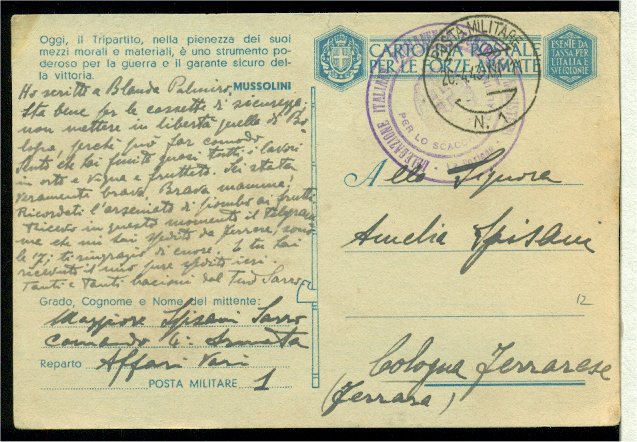 Oggi, il Tripartito, nella pienezza dei suoi
mezzi morali e materiali, è uno strumento po-
deroso per la guerra e il garante sicuro del-
la vittoria.
MUSSOLINI
Ho scritto a Blanda Palmiro.
Sta bene per le cassette di sicurezza
non mettere in libertà quella di Bo
logna, perchè può far comodo
Vedo che hai finito quasi tutti i lavori
in orto e vigna e frutteto. Sei stata
veramente brava. Brava mamma,
Ricordati l'arseniato di piombo ai frutti
Ricevo in questo momento il telegram
ma che mi hai spedito da Ferrara,
il 17; ti ringrazio di cuore. E tu hai
ricevuto il mio pure spedito ieri.
Tanti e Tanti bacioni dal Tuo Sarro
Grado, Cognome e Nome del mittente:
Maggiore Spisani Sarro
Comando 4ª Armata
Reparto Affari Vari
POSTA MILITARE 1
CARTOLINA POSTALE
PER LE FORZE ARMATE
ESENTE DA
TASSA PER
L'ITALIA E
SUE COLONIE
POSTA MILITARE
N. 1
DELEGAZIONE ITALIANA
PER LO SCACCO
A lla Signora
Amelia Spisani
12
Cologna Ferrarese
(Ferrara)